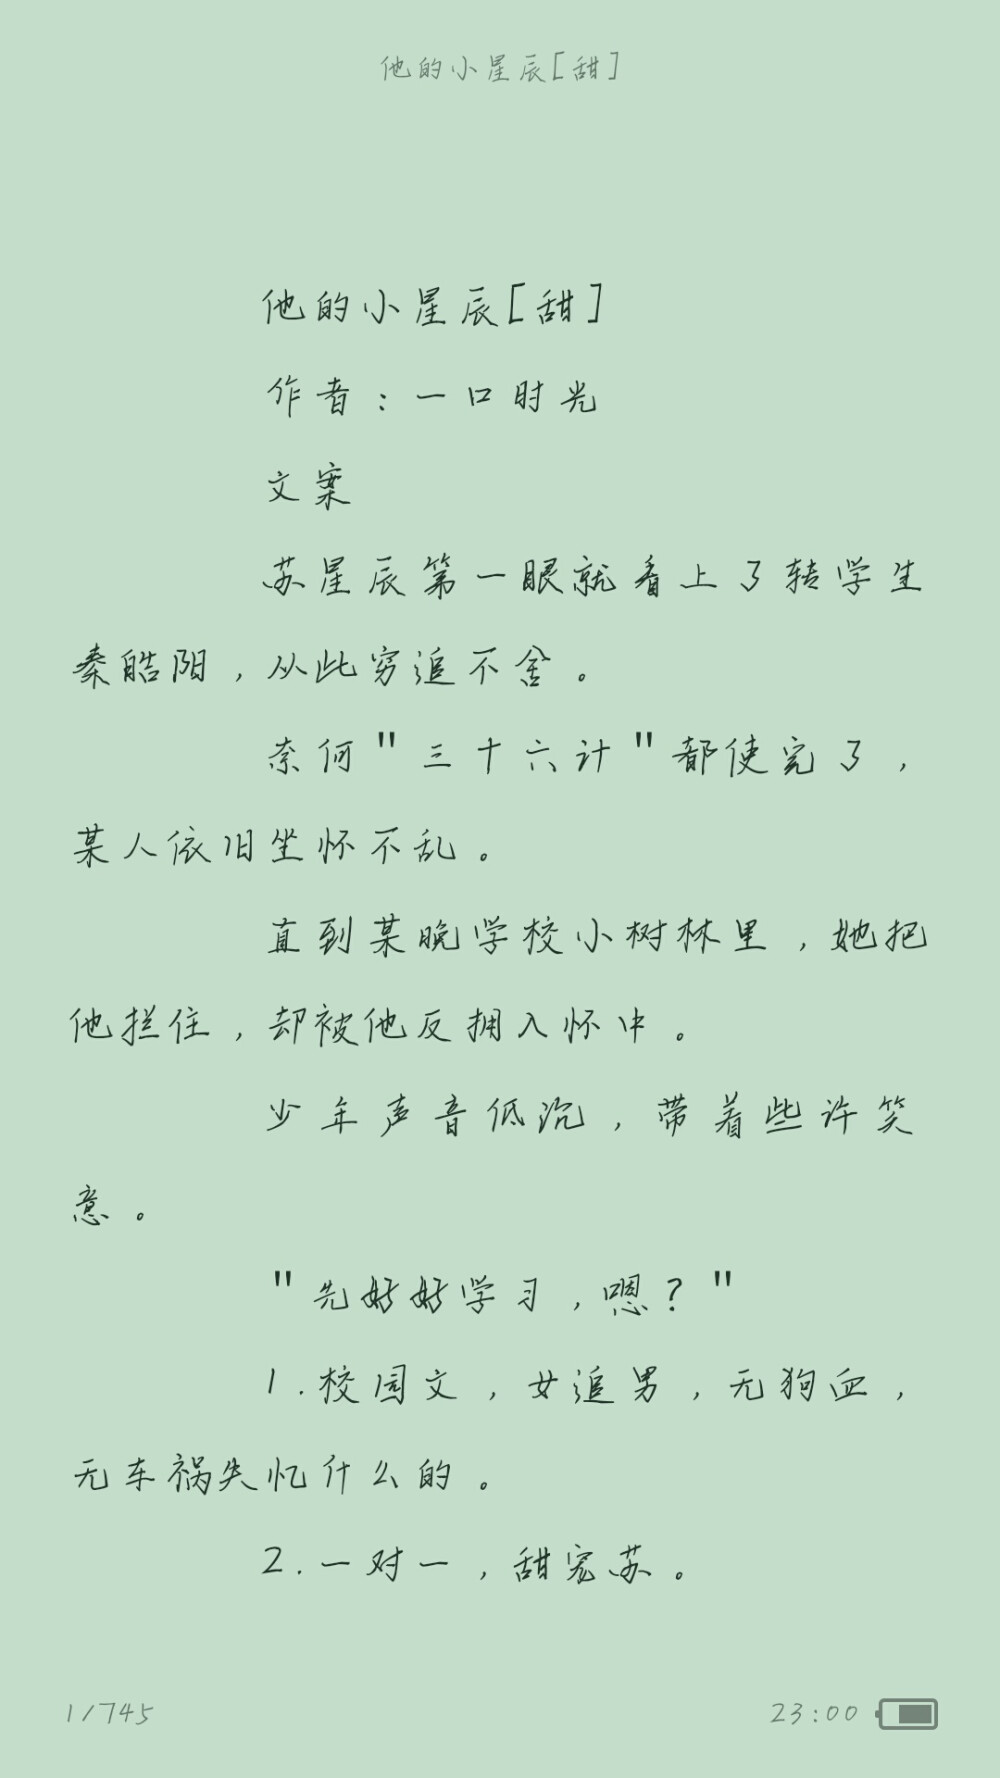 他的小星辰[甜]
他的小星辰[甜]
作者：一口时光
文案
苏星辰第一眼就看上了转学生
秦皓阳，从此穷追不舍。
奈何"三十六计"都使完了，
某人依旧坐怀不乱。
直到某晚学校小树林里，她把
他拦住，却被他反拥入怀中。
少年声音低沉，带着些许笑
意。
"先好好学习，嗯？"
1.校园文，女追男，无狗血，
无车祸失忆什么的。
2.一对一，甜宠苏。
1/745
23:00